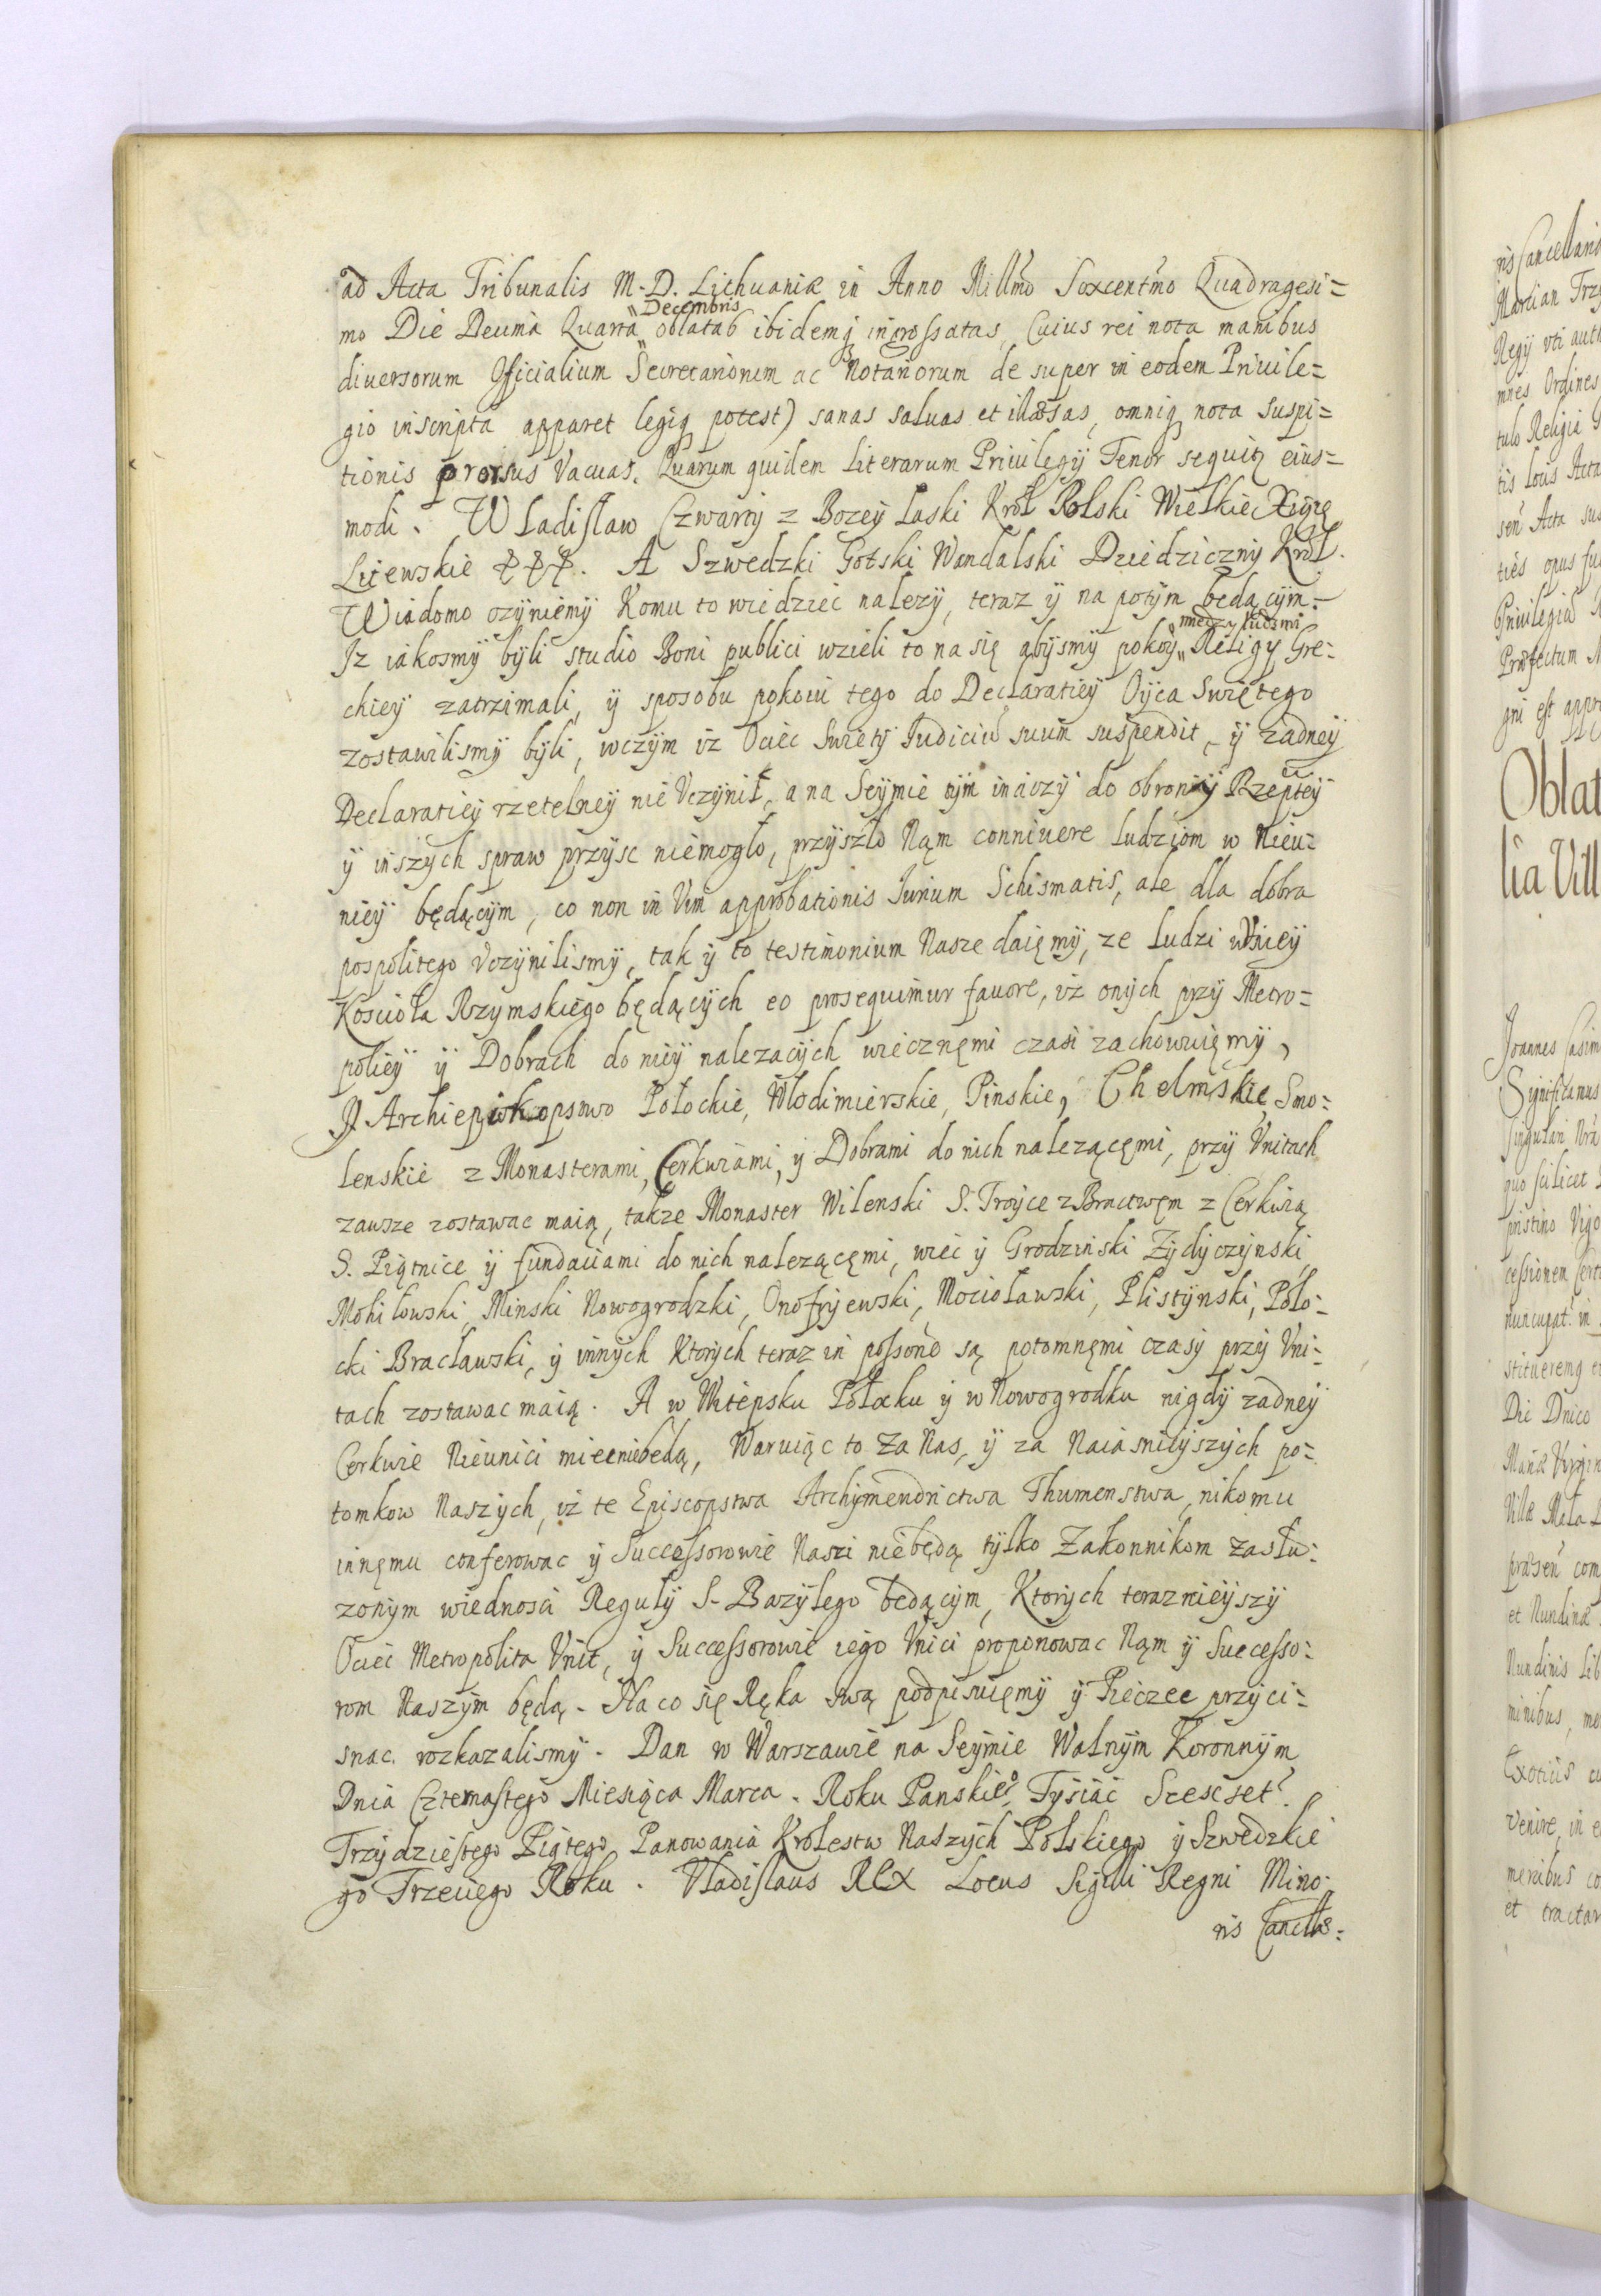 ad Acta Tribunalis M. D. Lithuaniæ in Anno Millmo Sexcentmo Quadragesi=
mo Die Decima Quarta "Decembris" oblatas ibidemq ingrossatas, Cuius rei nota manibus
diuersorum Officialium Secretariorum ac Notariorum de super in eodem Priuile=
gio inscripta apparet legiq potest) sanas saluas et illæsas, omniq nota suspi=
tionis prorsus Vacuas. Quarum quidem Literarum Priuilegÿ Tenor sequitq eius=
modi. Wladislaw Czwartÿ z Bozeÿ Laski Krol Polski Wielkie Xiążę
Litewskie &&&. A Szwedzki Gotski Wandalski Dziedzicznÿ Krol.
Wiadomo czÿniemÿ Komu to wiedziec nalezÿ, teraz ÿ na potÿm będącÿm.
Iz iakosmÿ bÿli studio Boni publici wzieli to na się abÿsmÿ pokoÿ "miedzy ludzmi" Religÿ Gre=
chieÿ zatrzimali, ÿ sposobu pokoiu tego do Declaratieÿ Oÿca Swiętego
zostawilismÿ bÿli, wczÿm iz Ociec Swietÿ Iudiciu suum suspendit, ÿ zadneÿ
Declaratieÿ rzetelneÿ nie Vczÿnił, a na Seÿmie tÿm inaczÿ do obronÿ Rzepteÿ
ÿ inszÿch spraw przÿsc niemogło, przÿszło Nąm conniuere ludziom w Nieu=
nieÿ będącÿm, co non in Vim approbationis Iurium Schismatis, ale dla dobra
pospolitego Vczÿnilismÿ, tak ÿ to testimonium Nasze daięmÿ, ze ludzi wVnieÿ
Kosciola Rzymskiego będącÿch eo prosequimur fauore, iz onÿch przÿ Metro=
polieÿ ÿ Dobrach do nieÿ nalezacÿch wiecznęmi czasi zachowuięmÿ,
Archiepiskopstwo Połockie, Włodimierskie, Pinskie, Chelmskie, Smo=
lenskie z Monasterami, Cerkwiami, ÿ Dobrami do nich nalezącęmi, przÿ Vnitach
zawsze zostawac maią, także Monaster Wilenski S. Troÿce z Bractwęm z Cerkwią
S. Piątnice ÿ fundaciami do nich nalezącęmi, wiec ÿ Grodzinski Zÿdÿczÿnski,
Mohilowski, Minski Nowogrodzki, Onofrÿewski, Mscisławski, Plistÿnski, Poło=
cki Bracławski, ÿ innÿch Ktorÿch teraz in possone są potomnęmi czasÿ przÿ Vni=
tach zostawac maią. A w Witepsku Połocku ÿ w Nowogrodku nigdÿ zadneÿ
Cerkwie Nieunici miec niebędą, Waruiąc to Za Nas, ÿ za Naiasnieÿszÿch po=
tomkow Naszÿch, iż te Episcopstwa Archÿmendrictwa Ihumenstwa, nikomu
innęmu conferowac ÿ Successorowie Naszi niebędą tÿlko Zakonnikom zasłu=
zonÿm wiednosci Regulÿ S. Bazÿlego będącÿm, Ktorÿch teraznieÿszÿ
Ociec Metropolita Vnit, ÿ Successorowie iego Vnici proponowac Nąm ÿ Successo=
rom Naszÿm będą. Na co się Ręka swą podpisuięmÿ ÿ Pieczec przÿci=
snac. rozkazalismÿ. Dan w Warszawie na Seÿmie Walnÿm Koronnÿm
Dnia Czternastego Miesiąca Marca. Roku Panskieo, Tÿsiąc Szescset.
Trzÿdziestego Piątego, Panowania Krolestw Naszÿch Polskiego ÿ Szwedzkie
go Trzeciego Roku. Vladislaus Rex Locus Sigilli Regni Mino=
ris Cancellas=